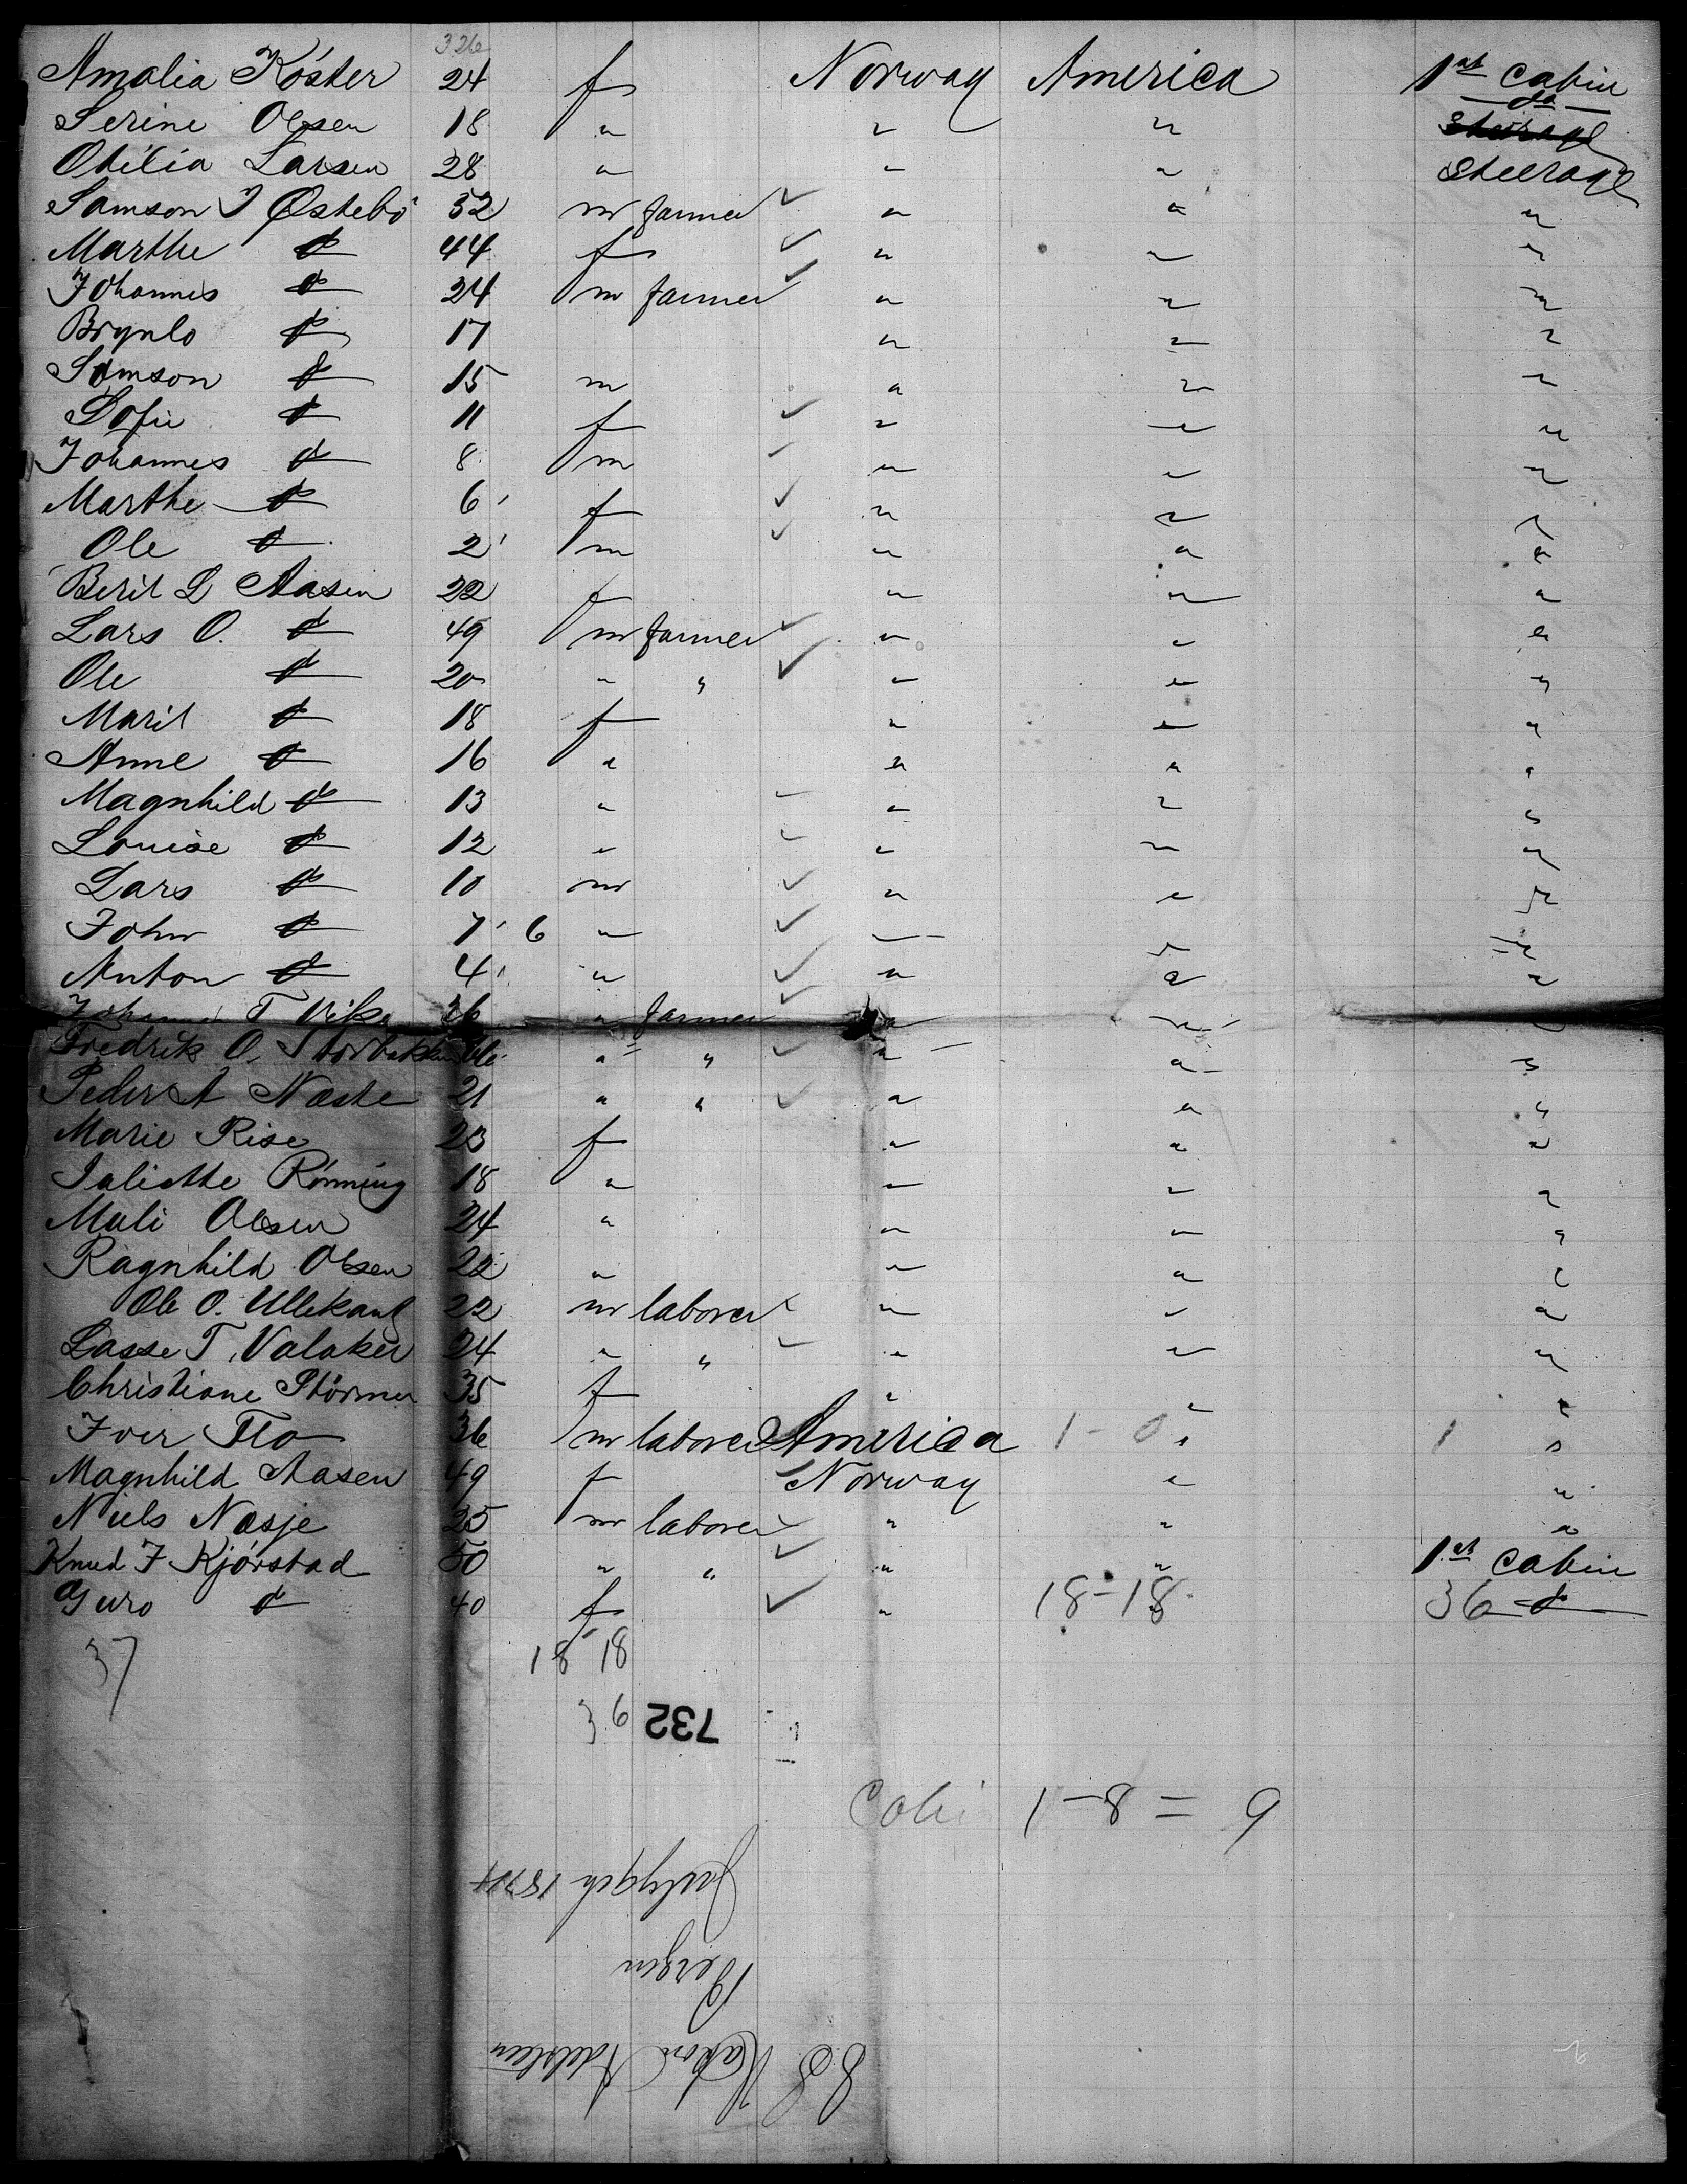 326
Amalia Köster 24 f Norway America 1st cabin
Serine Olsen 18 " " " do
Steerage
Otilia Larsen 28 " " " Steerage
Samson J Østebö 52 m farmer ✓ " " "
Marthe do 44 f ✓ " " "
Johannes do 24 m farmer ✓ " " "
Brynlo do 17 " " "
Samson do 15 m " " "
Sofie do 11 f ✓ " " "
Johannes do 8 m ✓ " " "
Marthe do 6 f ✓ " " "
Ole do 2 m ✓ " " "
Berit L Aasen 22 f " " "
Lars O. do 49 m farmer ✓ " " "
Ole do 20 " " ✓ " " "
Marit do 18 f " " "
Anne do 16 " " " "
Magnhild do 13 " ✓ " " "
Louise do 12 " ✓ " " "
Lars do 10 m ✓ " " "
John do 7 6 " ✓ " " "
Anton do 4 " ✓ " " "
T Vike 26 " farmer ✓ " " "
Fredrik O. " " ✓ " " "
Peder A Næste 21 " " ✓ " " "
Marie Rise 23 f " " "
Juliette Rönning 18 " " " "
Mali Olsen 24 " " " "
Ragnhild Olsen 22 " " " "
Ole O. 22 m laborer ✓ " " "
Lasse T. Valaker 24 " " ✓ " " "
Christiane Störmer 35 f " " "
Iver Flo 36 m laborer America 1-0 " 1 "
Magnhild Aasen 49 f ✓ Norway " "
Niels Næsje 25 m laborer ✓ " " "
Knud J Kjörstad 50 " " ✓ " " 1st cabin
Guro do 40 f ✓ " 18-18 " 36 do
37 18 18
36 732
1-8 = 9
July 1874
Bergen
SS Hakon Adelsten